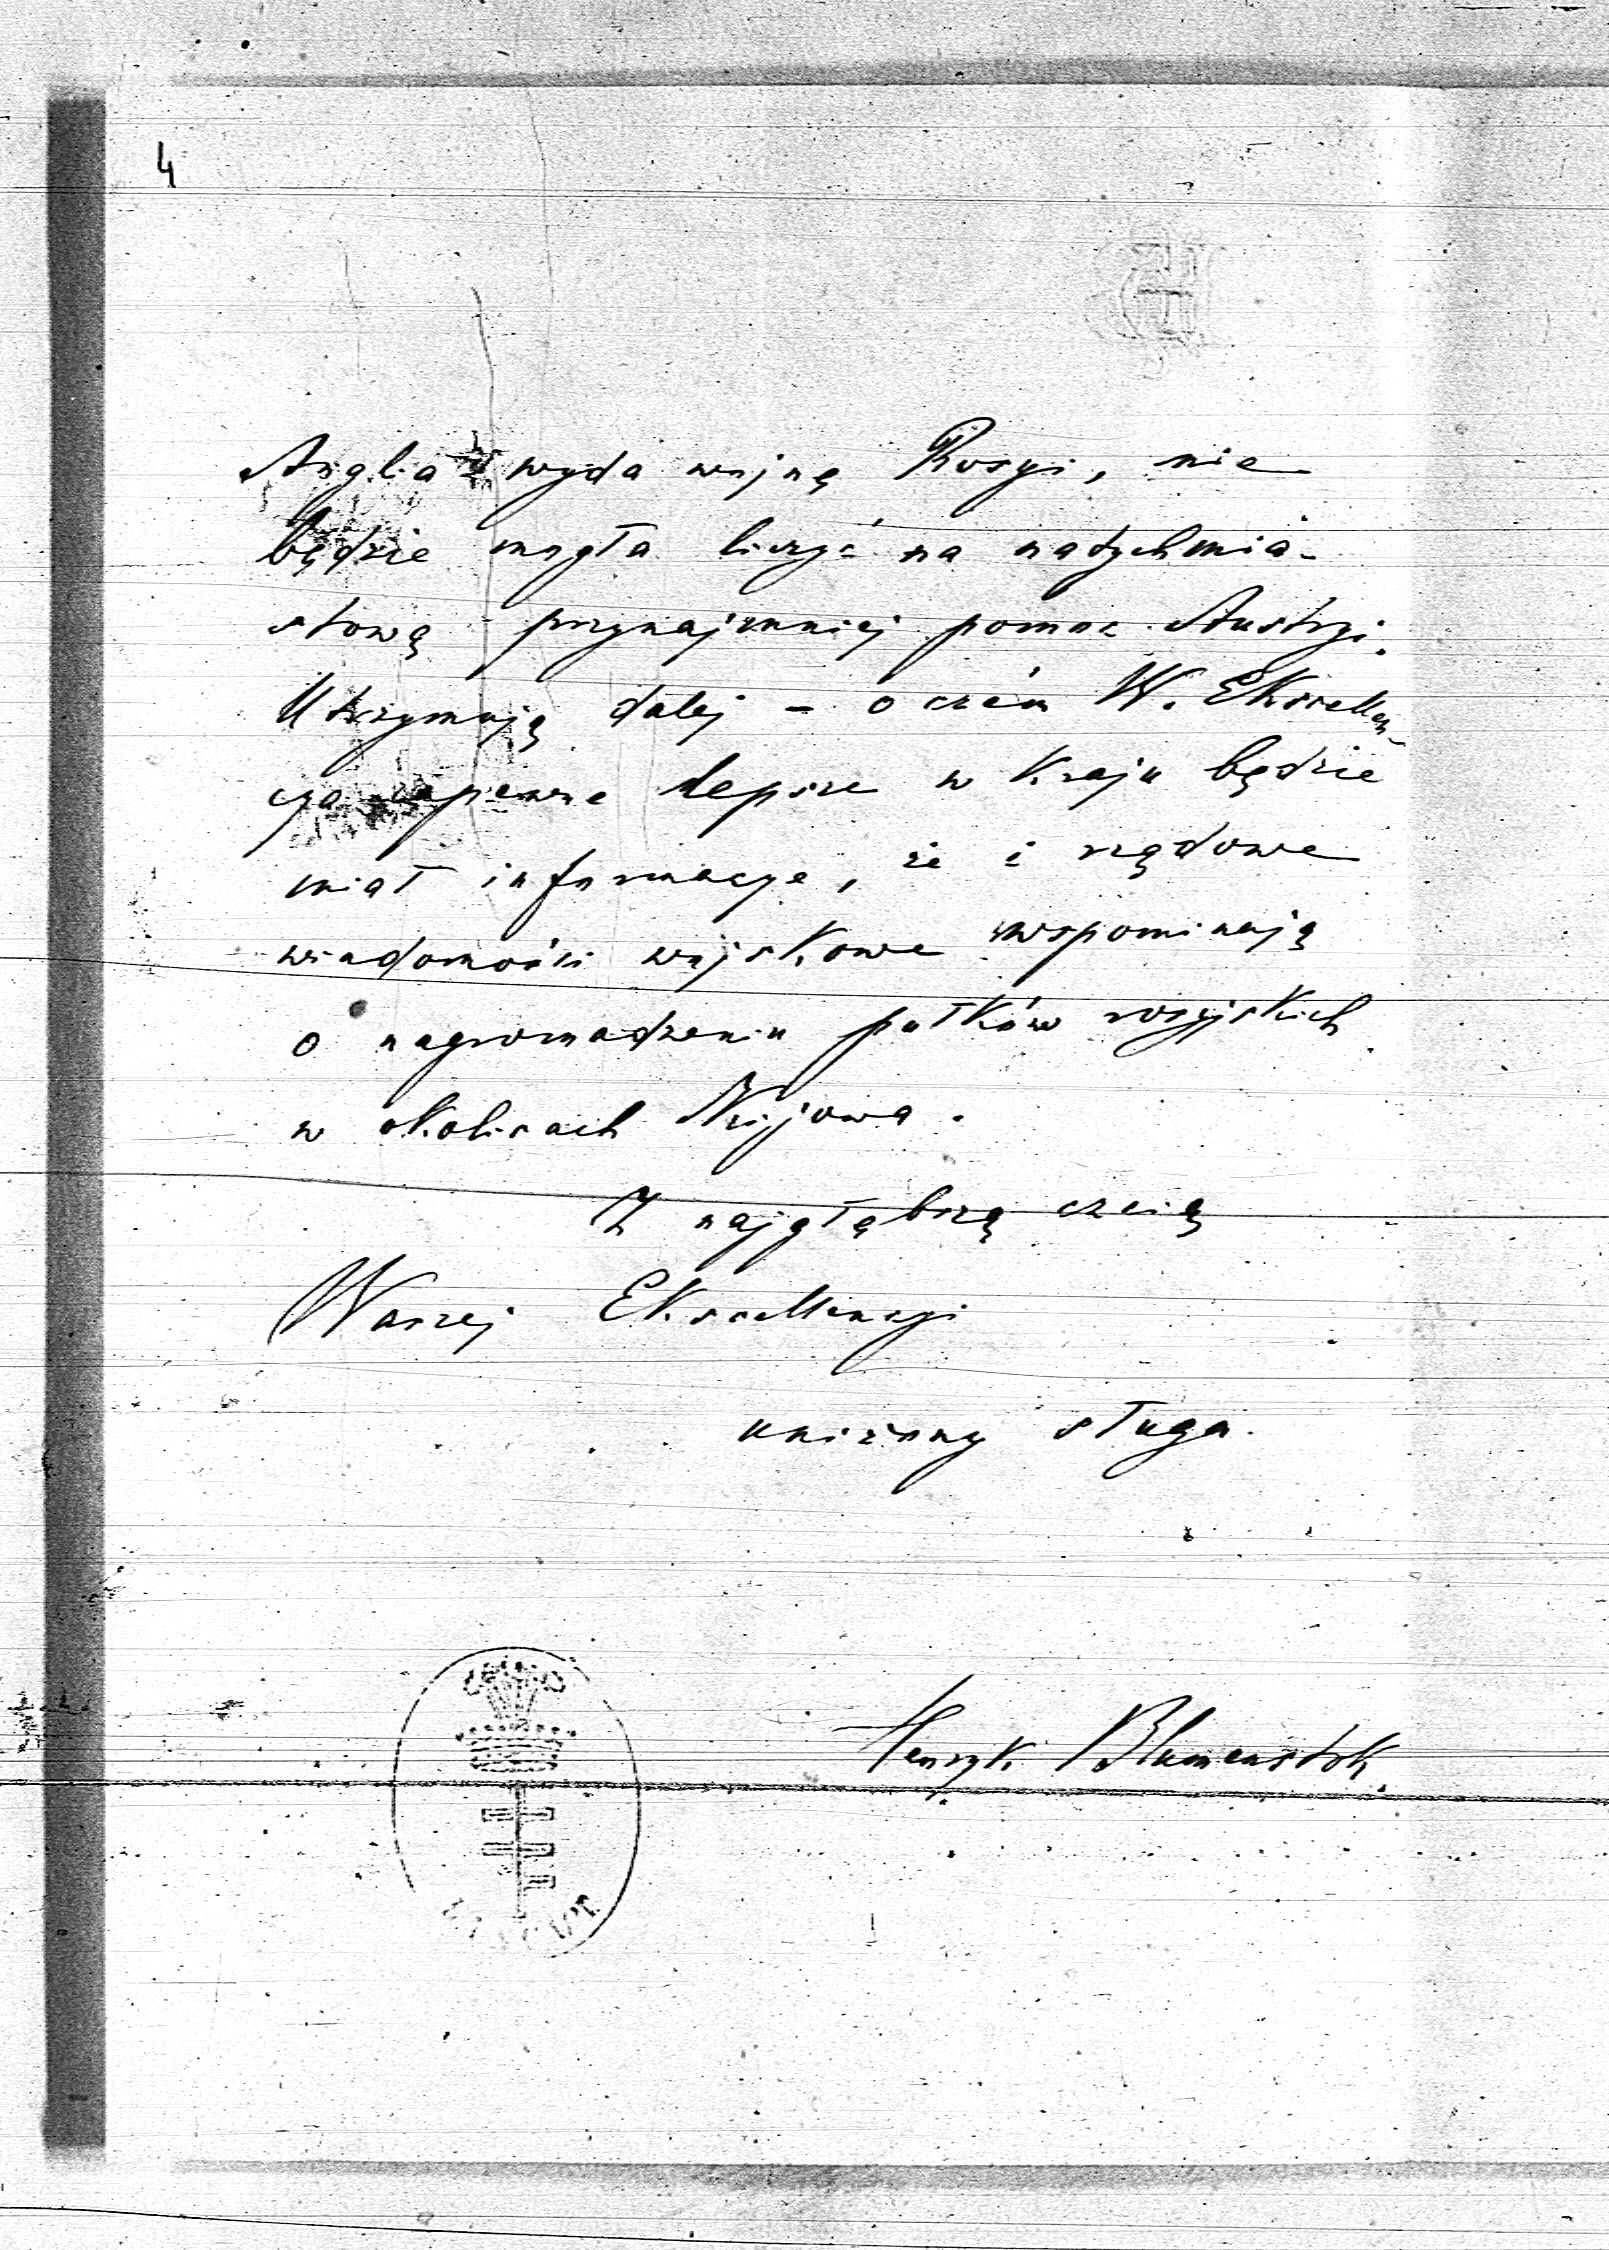 4
Anglia wyda wojnę Rosyi, nie
będzie mogła liczyć na natychmia-
stową przynajmniej pomoc Austryi.
Utrzymują dalej – o czém W. Ekscellen-
cya zapewne lepsze w Kraju będzie
miał informacye, że i rządowe
wiadomości wojskowe wspominają
o nagromadzeniu pułków rosyjskich
w okolicach Kijowa.
Z najgłębszą czcią
Waszej Ekscellencyi
uniżony sługa.
Henryk Blumenstok.